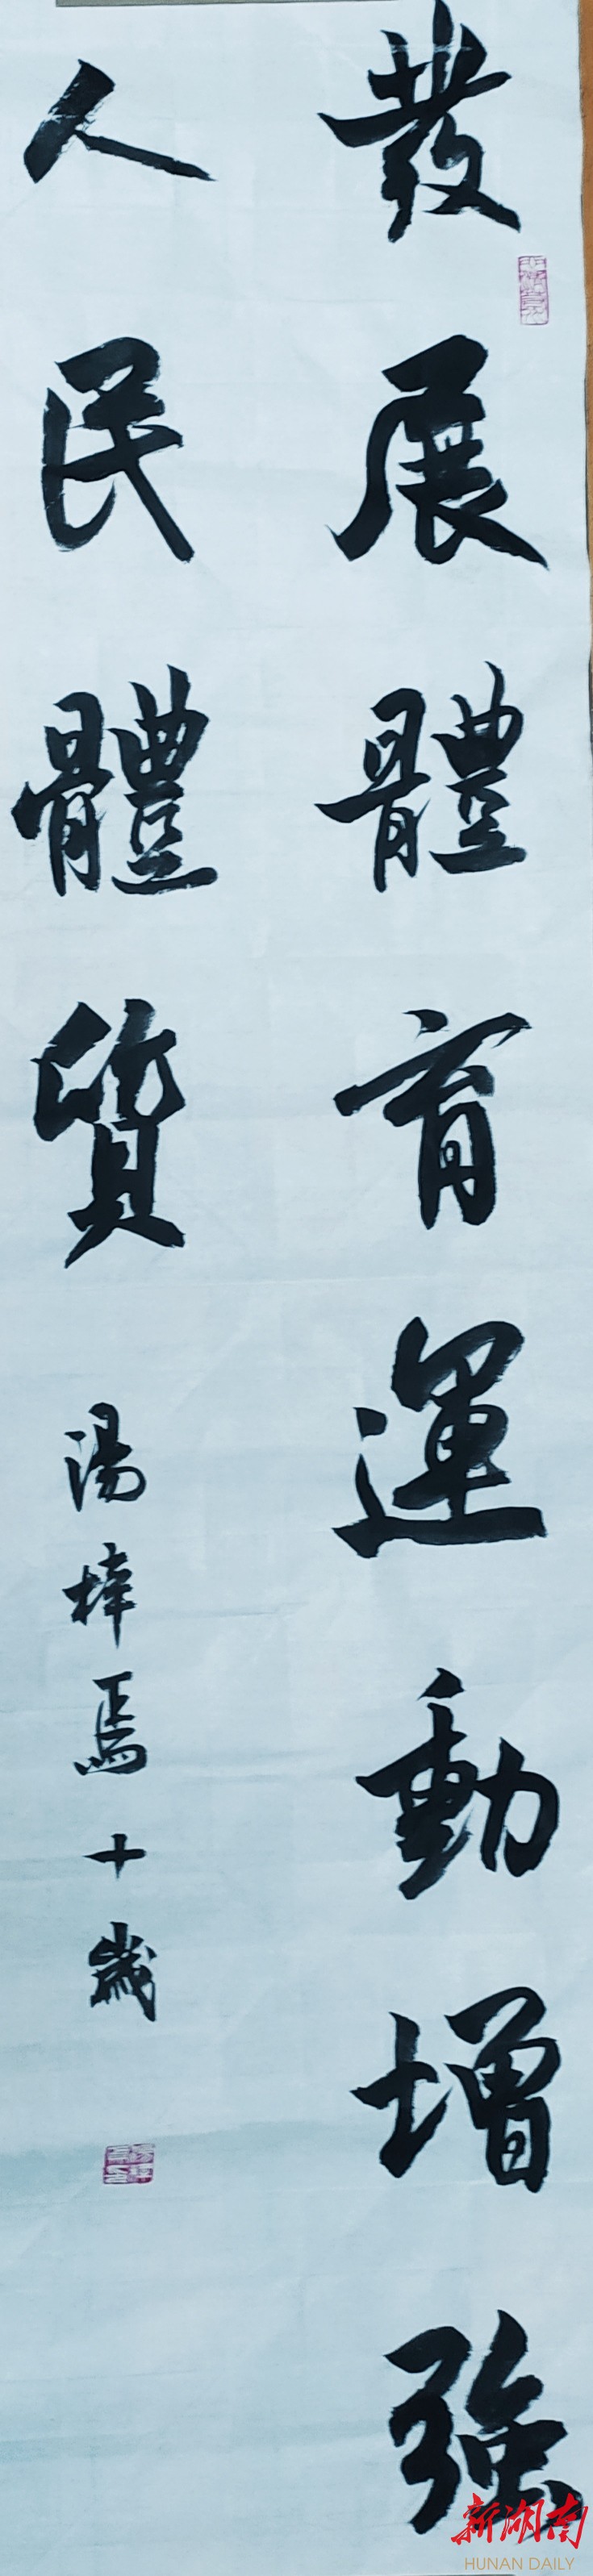 發展體育運動增強
人民體質
湯梓焉十歲
新湖南
HUNAN DAILY